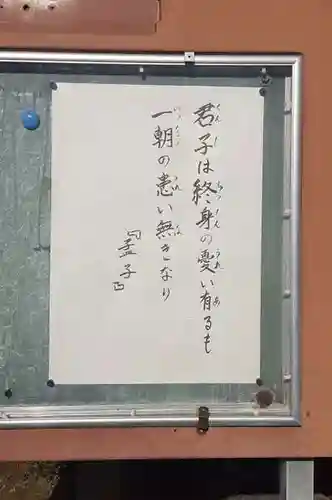 君子は終身の憂い有るも
一朝の患い無きなり
『孟子』